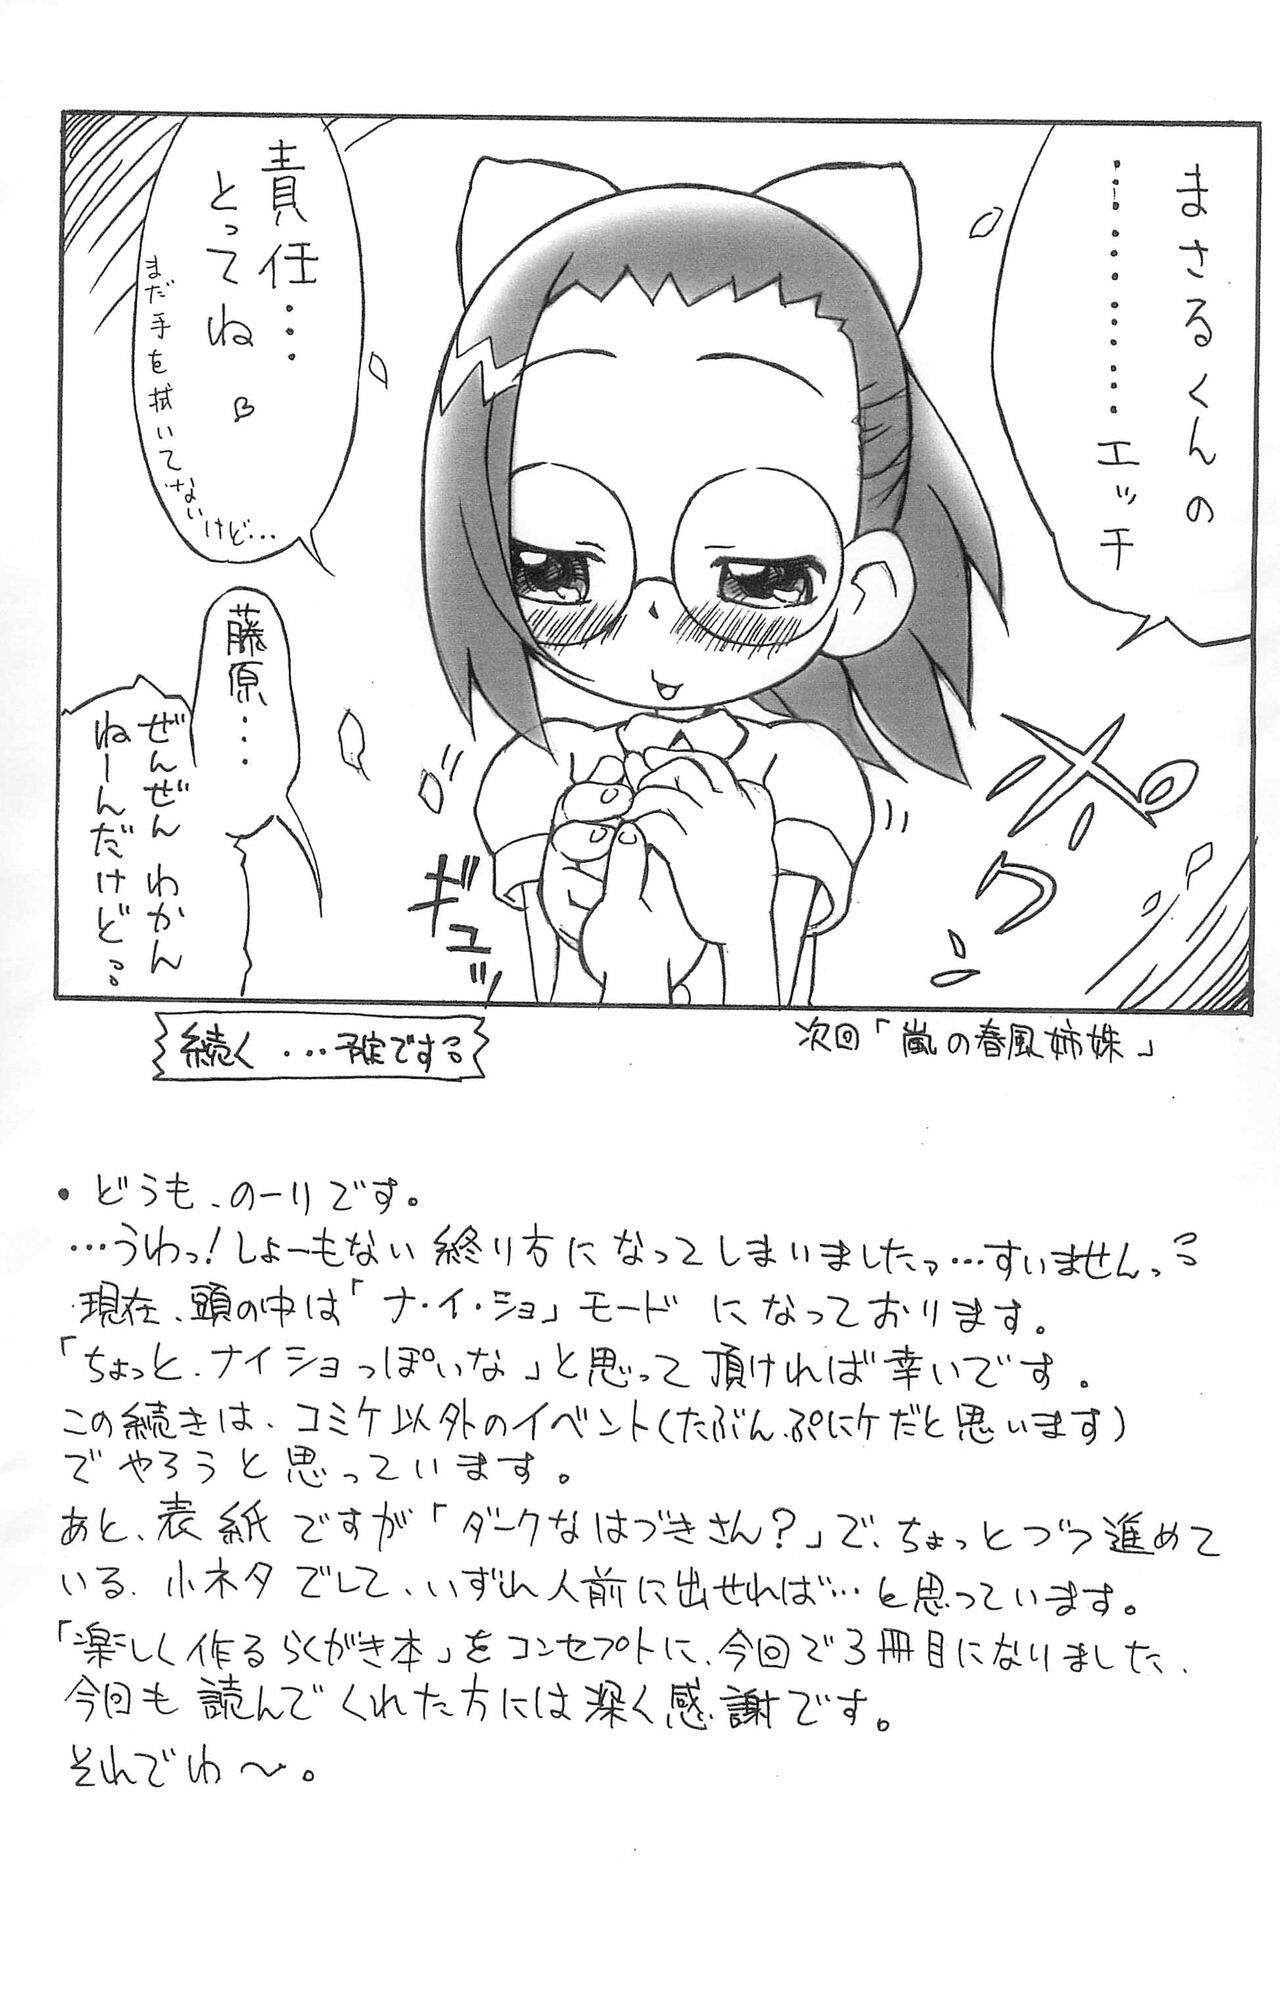 まさるくんの
…………エッチ
責任…
とってね♡
まだ手を拭いてないけど…
藤原…
ぜんぜんわかん
ねーんだけど…
ギュッ
次回「嵐の春風姉妹」
続く…予定です
・どうも、のーりです。
…うわっ!しょーもない終り方になってしまいましたっ…すいませんっ
現在、頭の中は「ナ・イ・ショ」モードになっております。
「ちょっと、ナイショっぽいな」と思って頂ければ幸いです。
この続きは、コミケ以外のイベント(たぶん、ぷにケだと思います)
でやろうと思っています。
あと、表紙ですが「ダークなはづきさん?」で、ちょっとづつ進めて
いる、小ネタでして、いずれ人前に出せれば…と思っています。
「楽しく作るらくがき本」をコンセプトに、今回で3冊目になりました、
今回も読んでくれた方には深く感謝です。
それでわ〜。